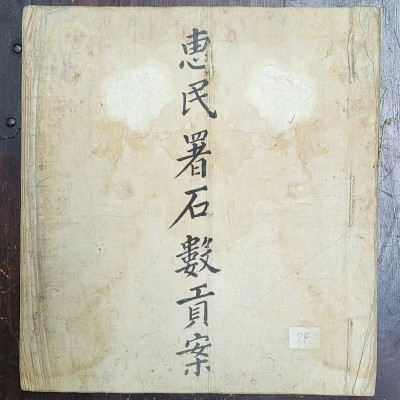 惠民署石數貢案
74